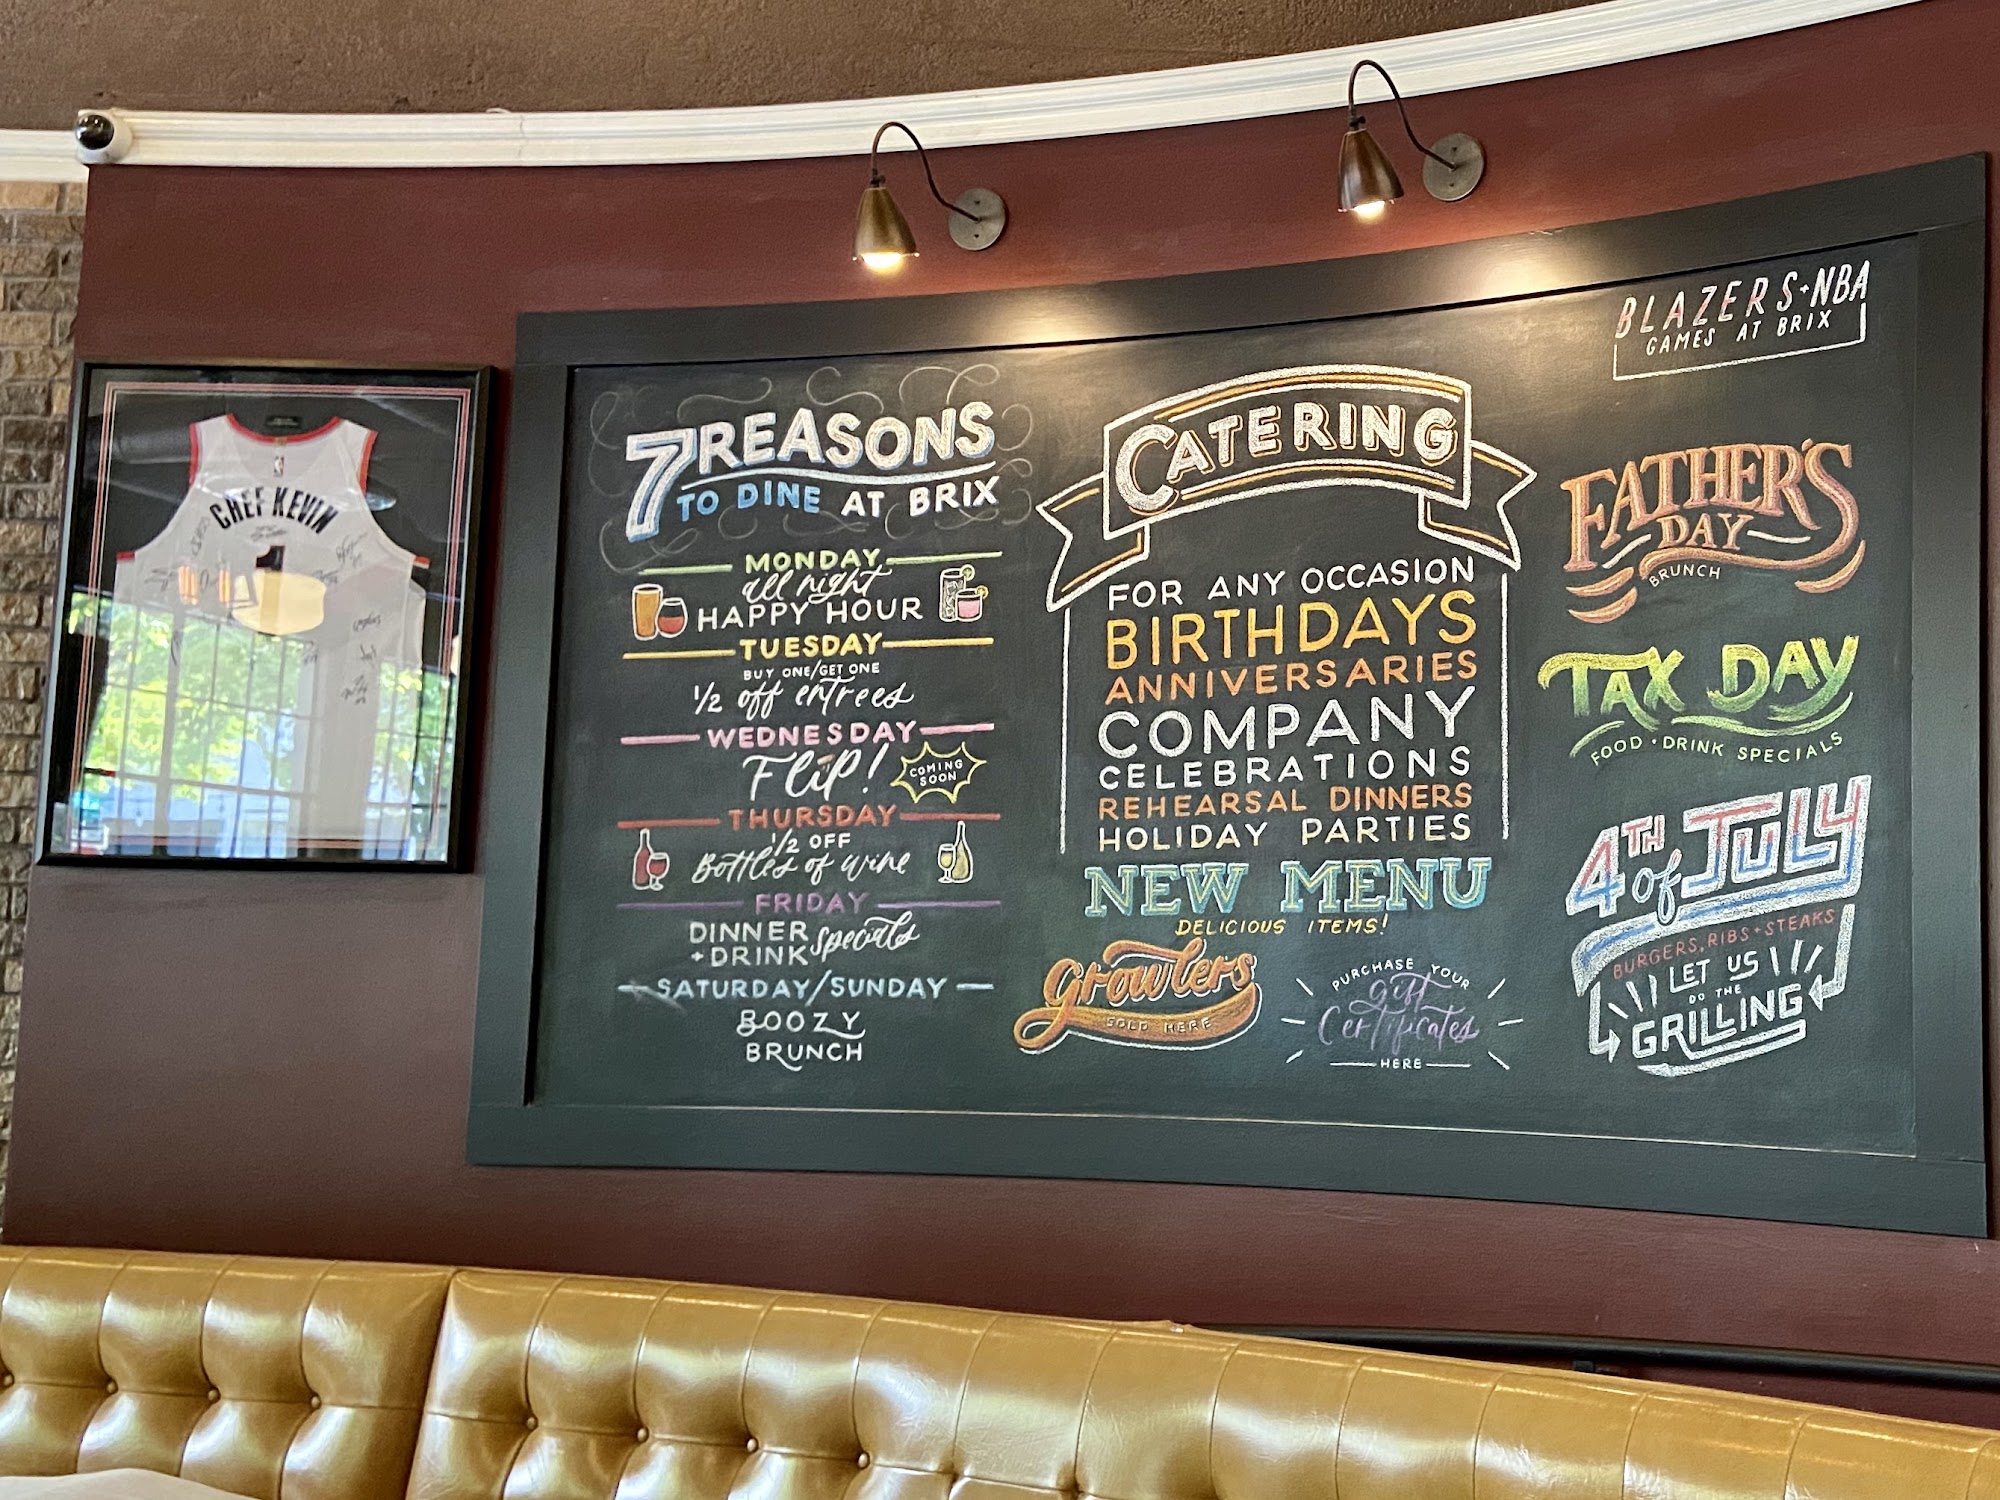 CHEF KEVIN
1
7 REASONS
TO DINE AT BRIX
MONDAY
all night
HAPPY HOUR
TUESDAY
BUY ONE/GET ONE
1/2 off entrees
WEDNESDAY
Flip!
COMING
SOON
THURSDAY
1/2 OFF
Bottles of wine
FRIDAY
DINNER
+ DRINK specials
SATURDAY/SUNDAY
BOOZY
BRUNCH
CATERING
FOR ANY OCCASION
BIRTHDAYS
ANNIVERSARIES
COMPANY
CELEBRATIONS
REHEARSAL DINNERS
HOLIDAY PARTIES
NEW MENU
DELICIOUS ITEMS!
Growlers
SOLD HERE
PURCHASE YOUR
gift
Certificates
HERE
BLAZERS + NBA
GAMES AT BRIX
FATHER'S
DAY
BRUNCH
TAX DAY
FOOD • DRINK SPECIALS
4TH of JULY
BURGERS, RIBS + STEAKS
LET US
DO THE
GRILLING